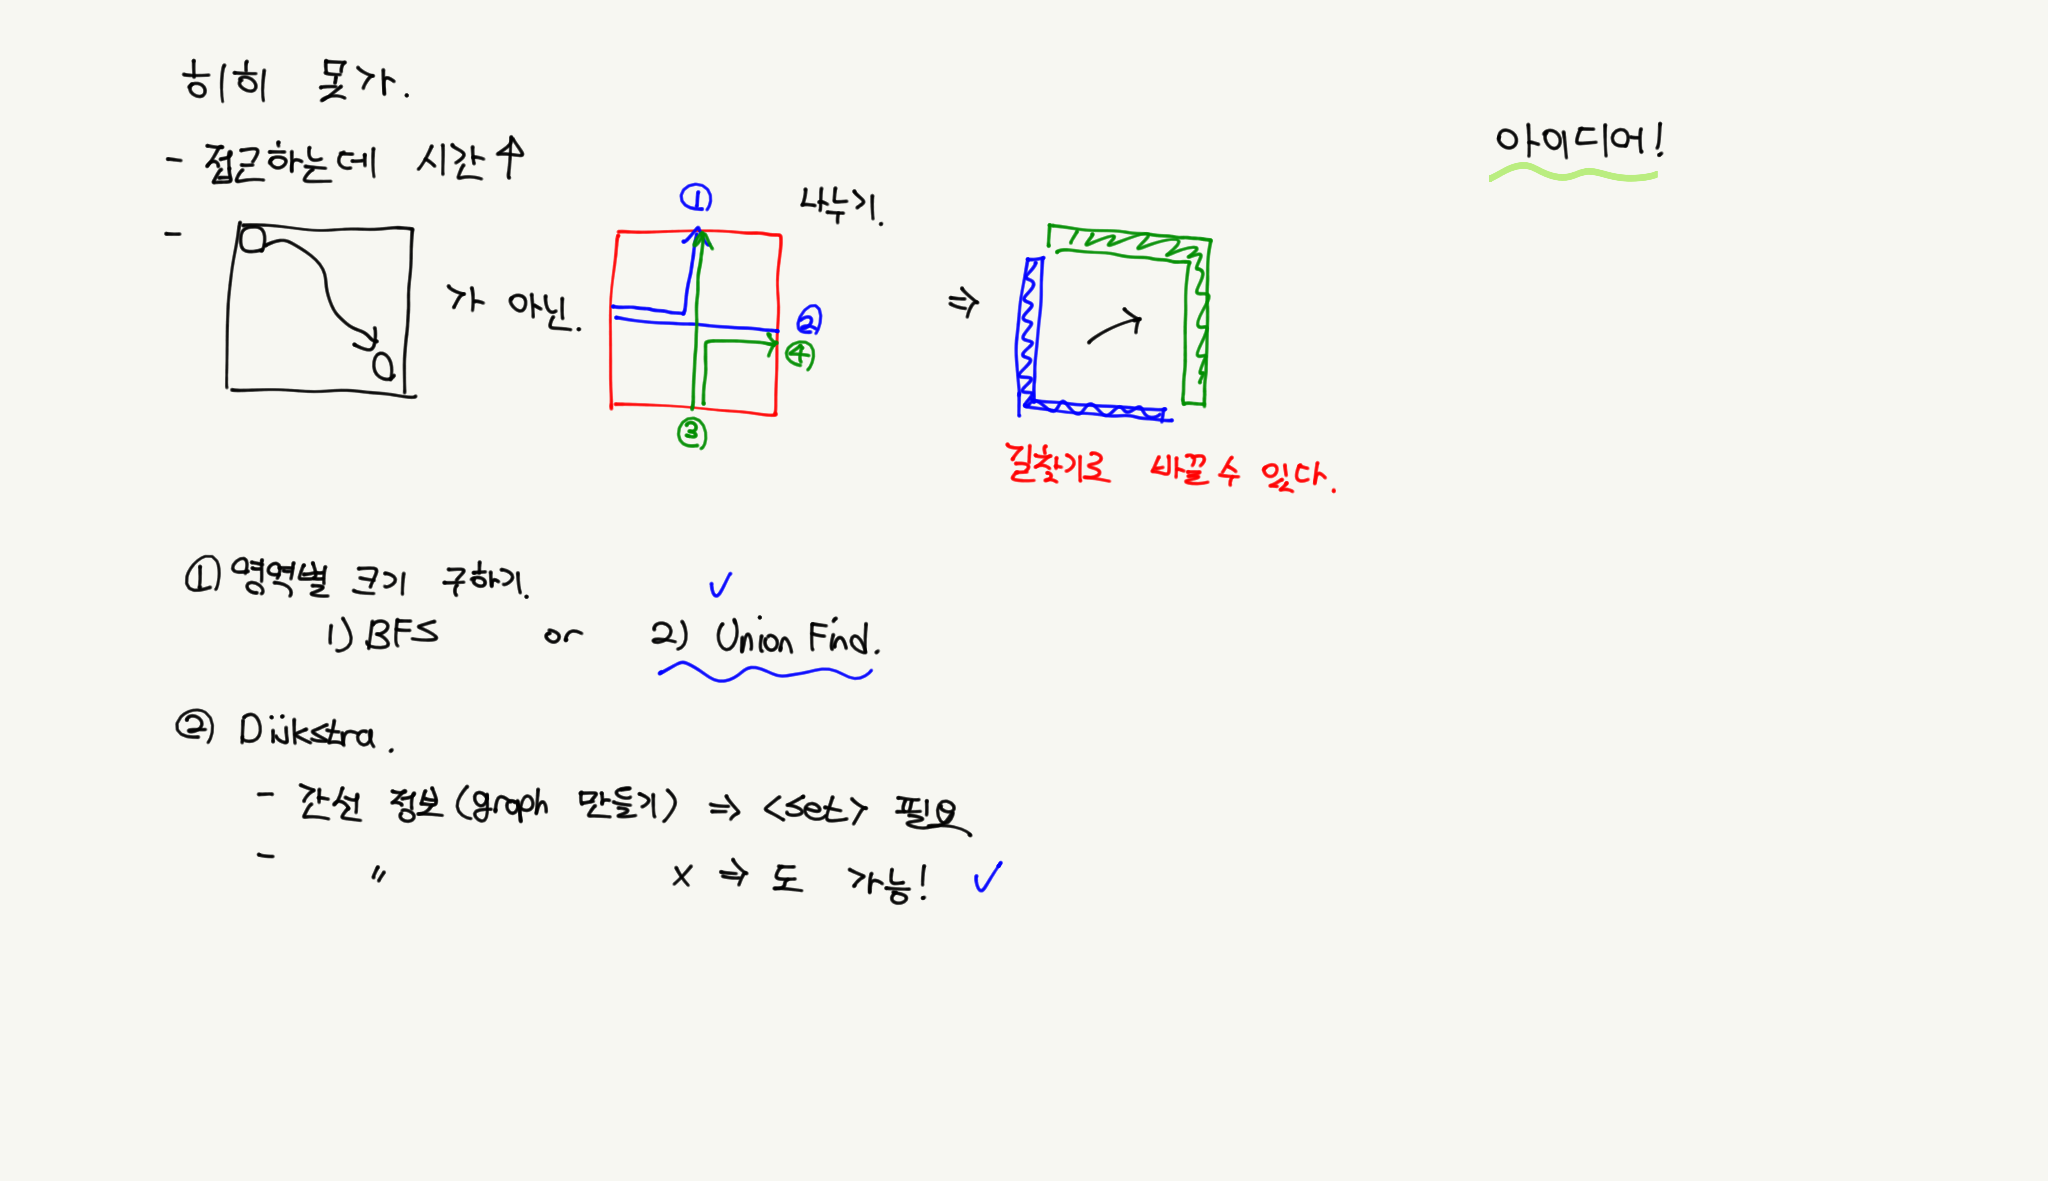 히히 못가.
아이디어!
- 접근하는데 시간↑
-
가 아닌.
① 나누기.
②
④
③
⇒
길찾기로 바꿀 수 있다.
① 영역별 크기 구하기. ✓
1) BFS or 2) Union Find.
② Dijkstra.
- 간선 정보(graph 만들기) ⇒ <set> 필요
- 〃 x ⇒ 도 가능! ✓